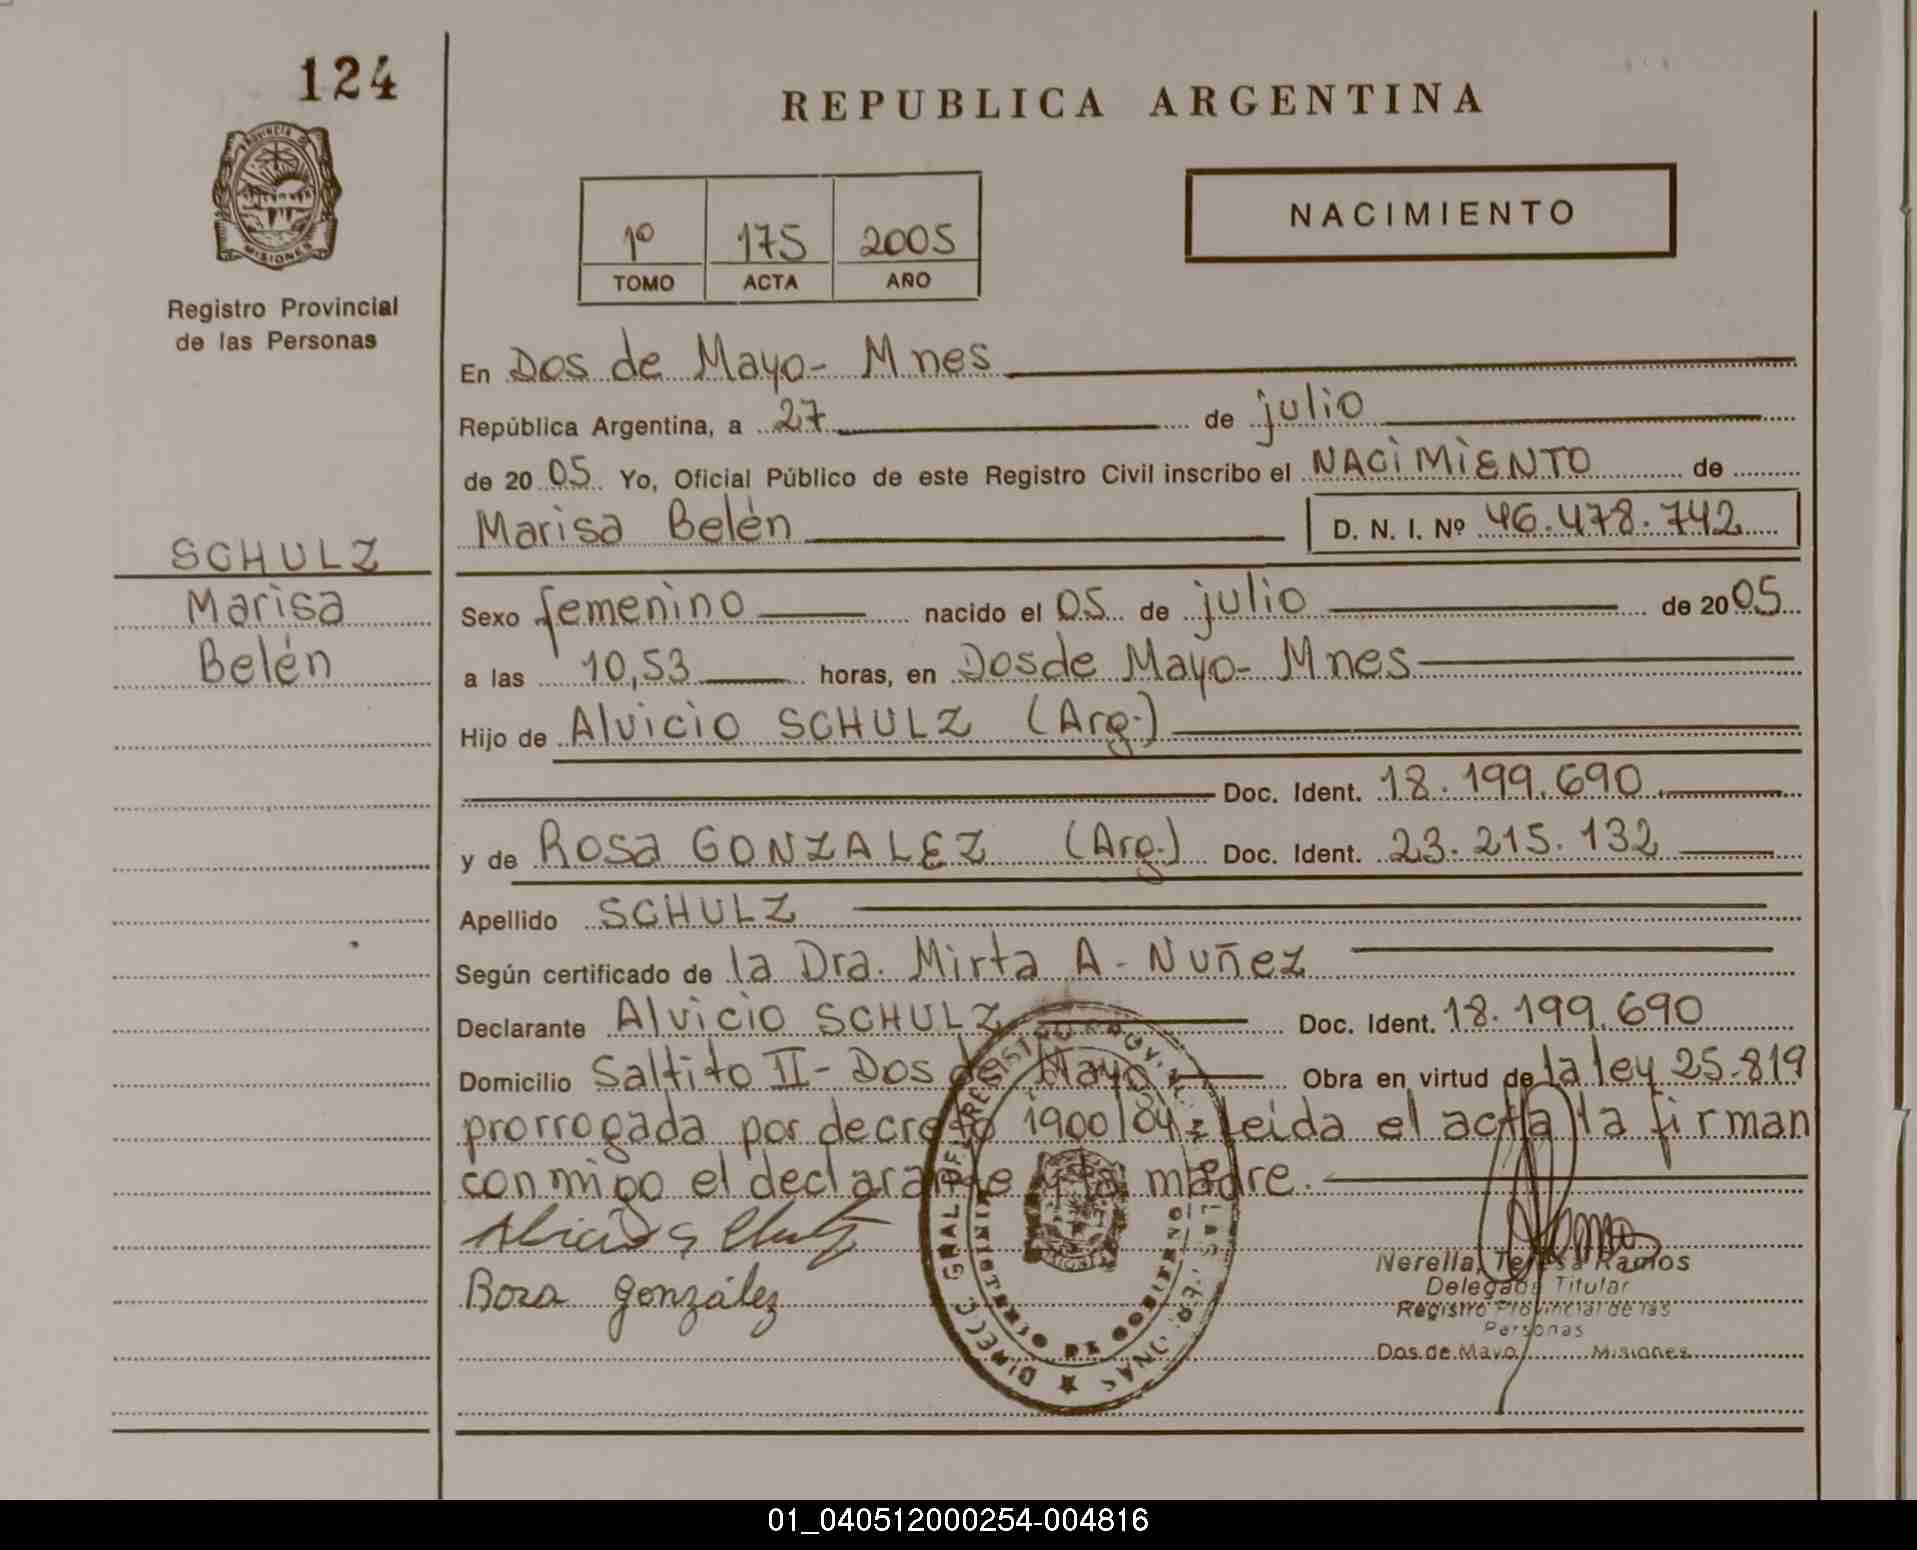 124
PROVINCIA DE
MISIONES
Registro Provincial
de las Personas
SCHULZ
Marisa
Belén
REPUBLICA ARGENTINA
1º 175 2005
TOMO ACTA AÑO
NACIMIENTO
En Dos de Mayo- Mnes
República Argentina, a 27 de julio
de 20 05 Yo, Oficial Público de este Registro Civil inscribo el NACIMIENTO de
Marisa Belén D. N. I. Nº 46.478.742
Sexo femenino nacido el 05 de julio de 20 05
a las 10,53 horas, en Dos de Mayo- Mnes
Hijo de Alvicio SCHULZ (Arg.)
Doc. Ident. 18.199.690
y de Rosa GONZALEZ (Arg.) Doc. Ident. 23.215.132
Apellido SCHULZ
Según certificado de la Dra. Mirta A- Nuñez
Declarante Alvicio SCHULZ Doc. Ident. 18.199.690
Domicilio Saltito II- Dos de Mayo Obra en virtud de la ley 25.819
prorrogada por decreto 1900/04 = Leida el acta la firman
conmigo el declarante y la madre.
Rosa González
Nerella Teresa Ramos
Delegada Titular
Registro Provincial de las
Personas
Dos de Mayo Misiones
MINISTERIO DE GOBIERNO
01_040512000254-004816